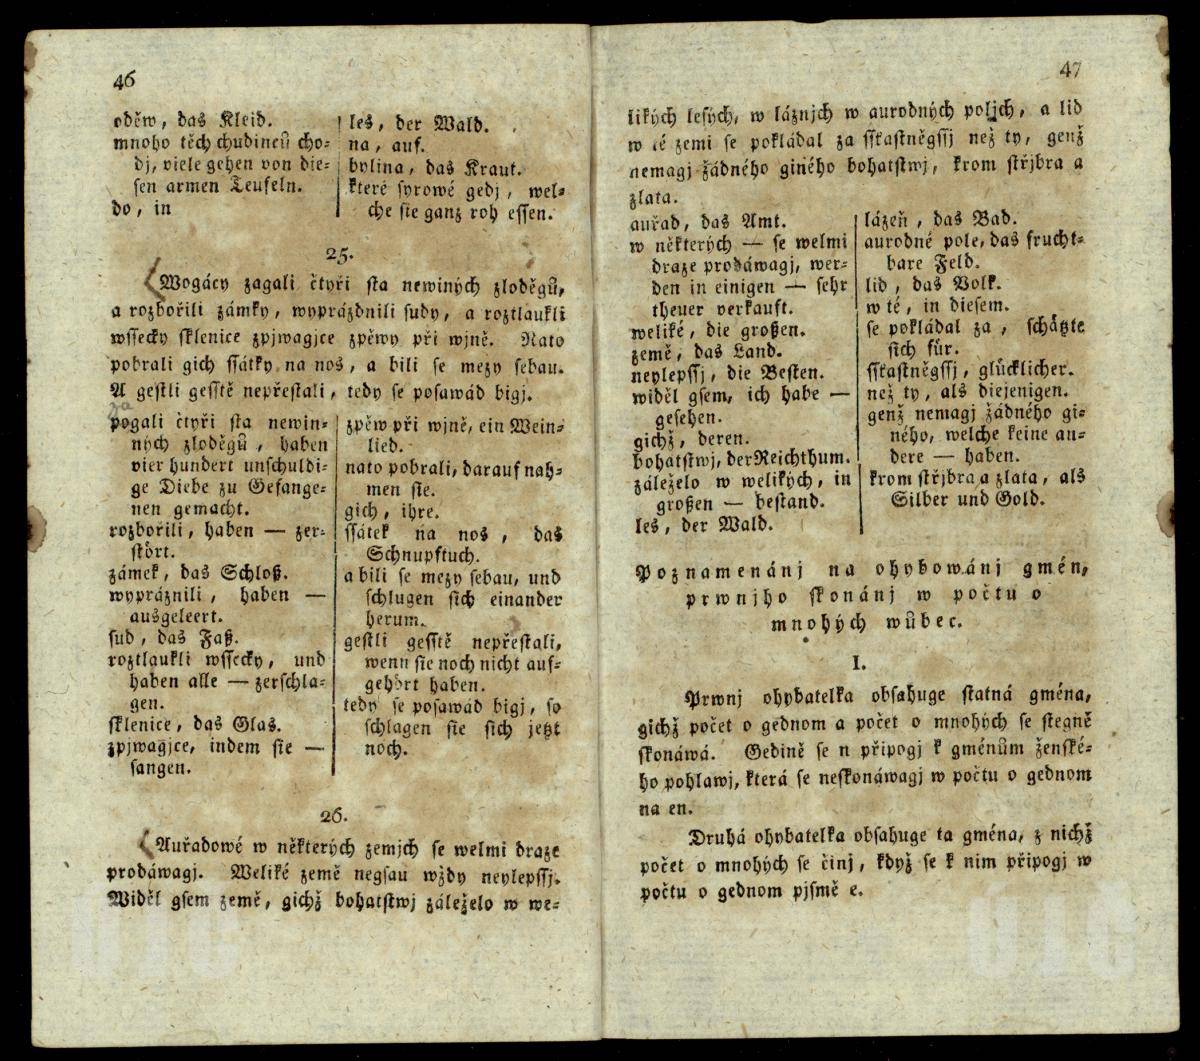 46
oděw, das Kleid.
mnoho těch chudinců cho-
dj, viele gehen von die-
sen armen Teufeln.
do, in
les, der Wald.
na, auf.
bylina, das Kraut.
které syrowé gedj, wel-
che sie ganz roh essen.
25.
Wogácy zagali čtyři sta newiných zloděgů,
a rozbořili zámky, wyprázdnili sudy, a roztlaukli
wssecky sklenice zpjwagjce zpěwy při wjně. Nato
pobrali gich ssátky na nos, a bili se mezy sebau.
A gestli gesstě nepřestali, tedy se posawád bigj.
za
pogali čtyři sta newin-
ných zloděgů, haben
vier hundert unschuldi-
ge Diebe zu Gefange-
nen gemacht.
rozbořili, haben — zer-
stört.
zámek, das Schloß.
wypráznili, haben —
ausgeleert.
sud, das Faß.
roztlaukli wssecky, und
haben alle — zerschla-
gen.
sklenice, das Glas.
zpjwagjce, indem sie —
sangen.
zpěw při wjně, ein Wein-
lied.
nato pobrali, darauf nah-
men sie.
gich, ihre.
ssátek na nos, das
Schnupftuch.
a bili se mezy sebau, und
schlugen sich einander
herum.
gestli gesstě nepřestali,
wenn sie noch nicht auf-
gehört haben.
tedy se posawád bigj, so
schlagen sie sich jetzt
noch.
26.
Auřadowé w některých zemjch se welmi draze
prodáwagj. Weliké země negsau wždy neylepssj.
Widěl gsem země, gichž bohatstwj záleželo w we-
47
likých lesých, w láznjch w aurodných poljch, a lid
w té zemi se pokládal za sskastněgssj než ty, genž
nemagj žádného giného bohatstwj, krom střjbra a
zlata.
auřad, das Amt.
w některých — se welmi
draze prodáwagj, wer-
den in einigen — sehr
theuer verkauft.
weliké, die großen.
země, das Land.
neylepssj, die Besten.
widěl gsem, ich habe —
gesehen.
gichž, deren.
bohatstwj, der Reichthum.
záleželo w welikých, in
großen — bestand.
les, der Wald.
lázeň, das Bad.
aurodné pole, das frucht-
bare Feld.
lid, das Volk.
w té, in diesem.
se pokládal za, schätzte
sich für.
sskastněgssj, glücklicher.
než ty, als diejenigen.
genž nemagj žádného gi-
ného, welche keine an-
dere — haben.
krom střjbra a zlata, als
Silber und Gold.
Poznamenánj na ohybowánj gmén,
prwnjho skonánj w počtu o
mnohých wůbec.
I.
Prwnj ohybatelka obsahuge statná gména,
gichž počet o gednom a počet o mnohých se stegně
skonáwá. Gedině se n připogj k gménům ženské-
ho pohlawj, která se neskonáwagj w počtu o gednom
na en.
Druhá ohybatelka obsahuge ta gména, z nichž
počet o mnohých se činj, když se k nim připogj w
počtu o gednom pjsmě e.